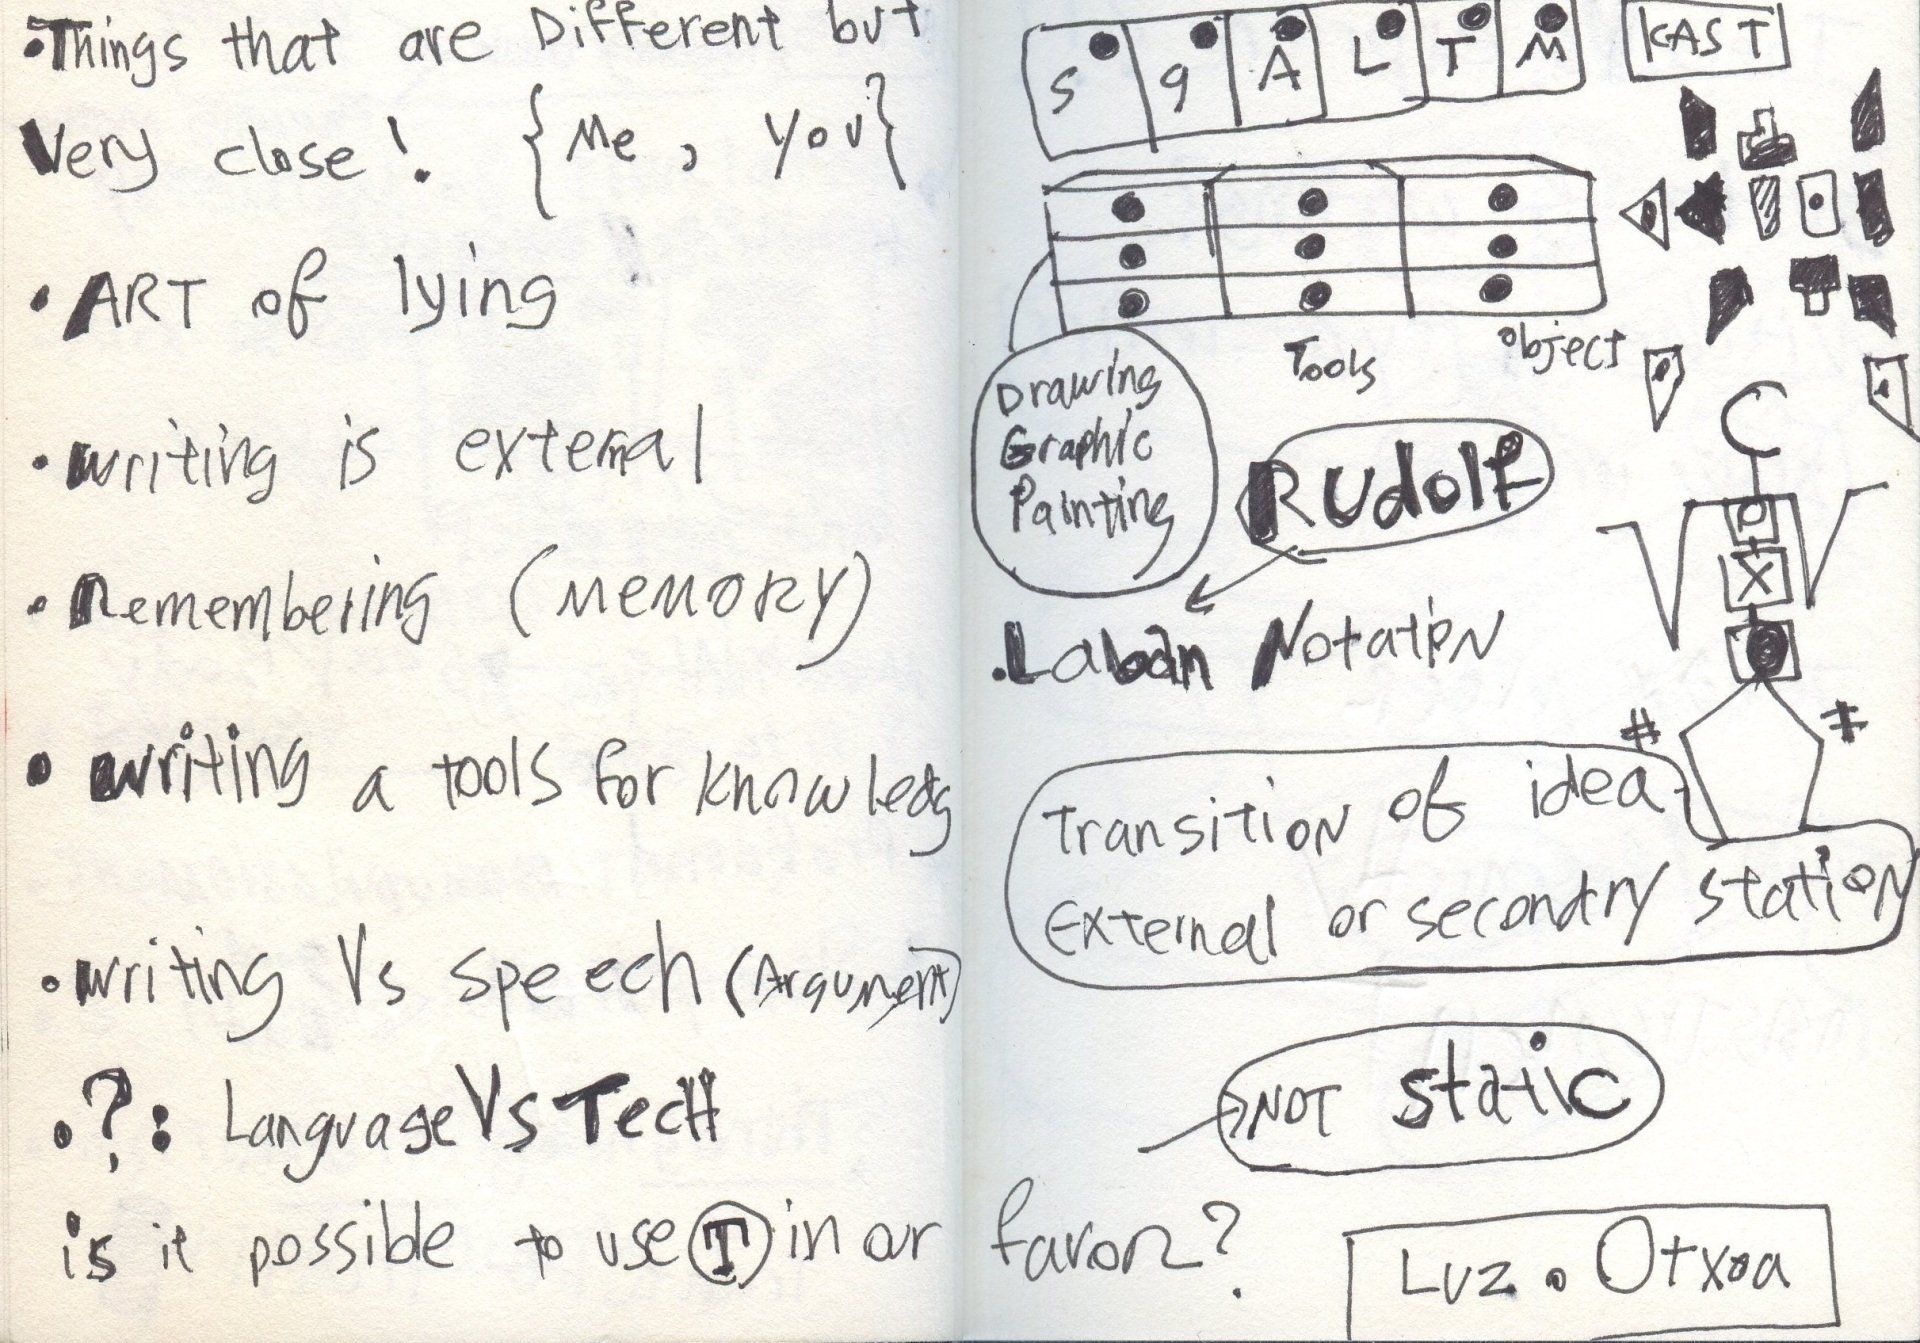 •Things that are Different but
Very close! {Me, you}
•ART of lying
•writing is external
•Remembering (MEMORY)
•writing a tools for knowledg
•writing Vs speech (Argument)
•?: Language Vs Tech
is it possible to use Ⓣ in our favor?
S 9 A L T M
KAST
Tools
object
Drawing
Graphic
Painting
Rudolf
•Laban Notation
# #
Transition of idea
External or secondry station
NOT static
Luz . Otxoa